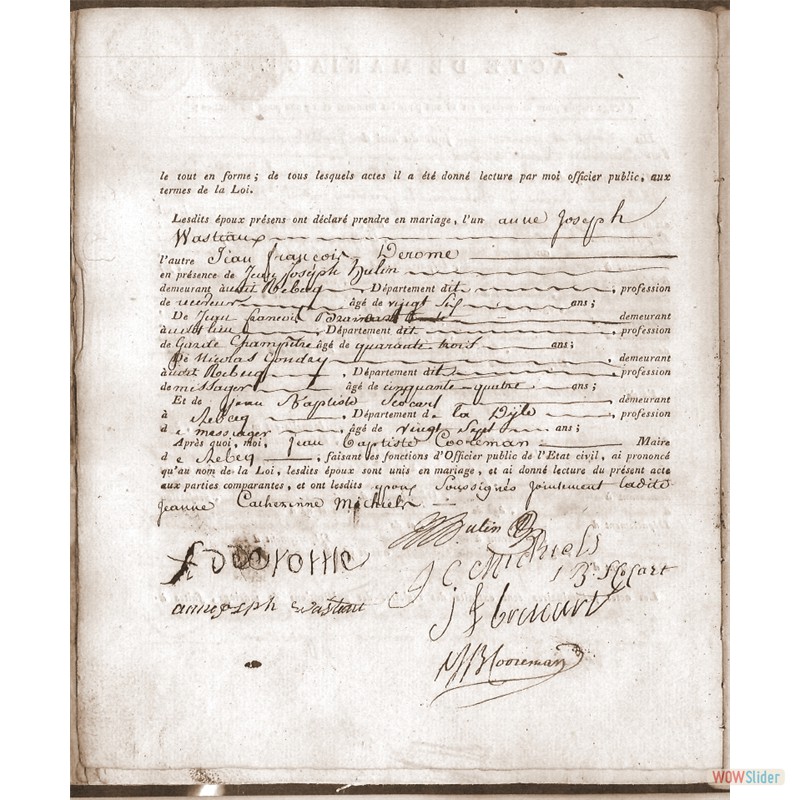 ACTE DE MARIAG
le tout en forme ; de tous lesquels actes il a été donné lecture par moi officier public, aux
termes de la Loi.
Lesdits époux présens ont déclaré prendre en mariage, l'un anne Joseph
Wasteaux
l'autre Jean françois Derome
en présence de Jean Joseph hulin
demeurant audit Rebecq, Département dit, profession
de recereur âgé de vingt six ans ;
De Jean francois demeurant
audit lieu, Département dit, profession
de Garde Champêtre âgé de quarante trois ans ;
De Nicolas Conday, demeurant
audit Rebecq, Département dit, profession
de messager âgé de cinquante quatre ans ;
Et de Jean Baptiste Scocart demeurant
à Rebecq, Département de la Dyle, profession
de messager âgé de vingt Sept ans ;
Après quoi, moi, Jean Baptiste Cooreman Maire
de Rebecq, faisant les fonctions d'Officier public de l'Etat civil, ai prononcé
qu'au nom de la Loi, lesdits époux sont unis en mariage, et ai donné lecture du présent acte
aux parties comparantes, et ont lesdits epoux Soussignés jointement ladite
Jeanne Catherinne Michiels
hulin
Derome
J C Michiels
J B Scocart
anne joseph wasteaut
J f
J B Cooreman
WOWSlider